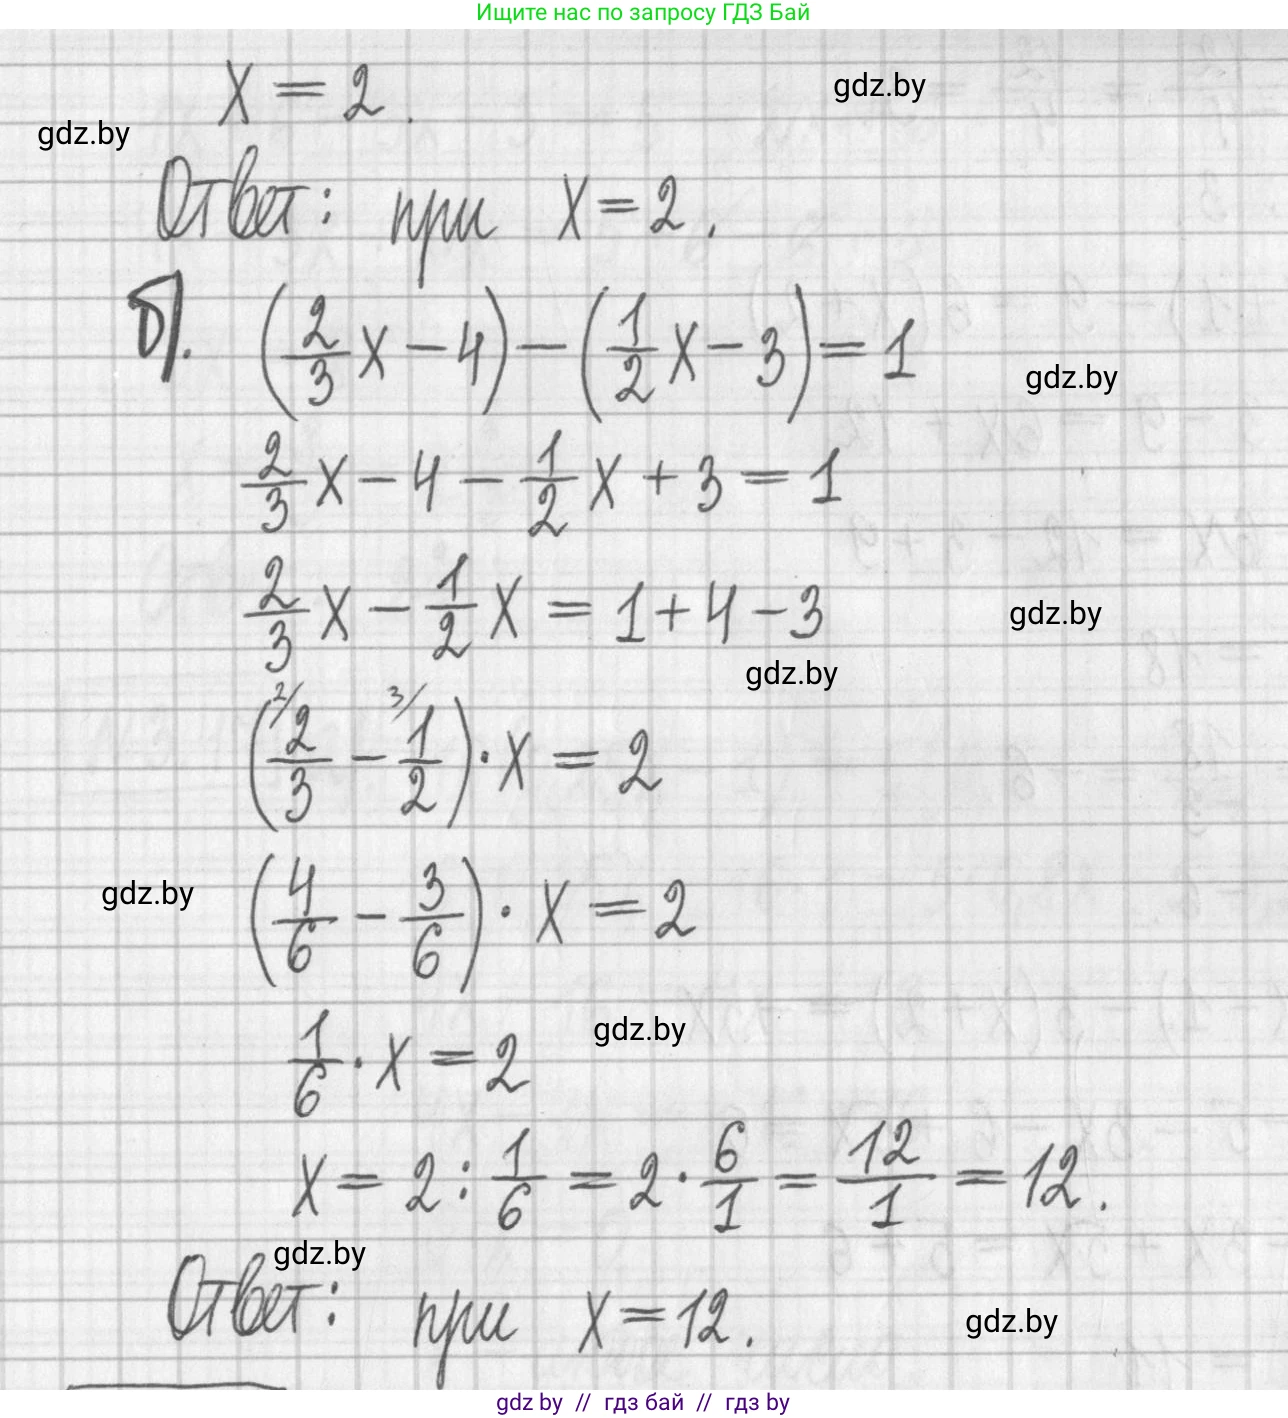 Ищите нас по запросу ГДЗ Бай
x = 2.
gdz.by
gdz.by
Ответ: при x = 2.
б). (2/3 x − 4) − (1/2 x − 3) = 1
gdz.by
2/3 x − 4 − 1/2 x + 3 = 1
2/3 x − 1/2 x = 1 + 4 − 3
gdz.by
gdz.by
(2/ 2/3 − 3/ 1/2) · x = 2
(4/6 − 3/6) · x = 2
gdz.by
gdz.by
1/6 · x = 2
x = 2 : 1/6 = 2 · 6/1 = 12/1 = 12.
gdz.by
Ответ: при x = 12.
gdz.by
gdz by // гдз бай // гдз by